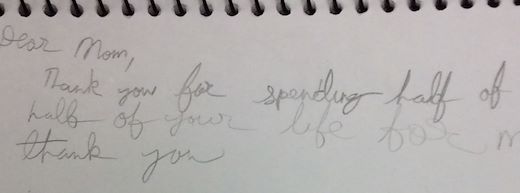 Dear Mom,
Thank you for spending half of
half of your life for
thank you